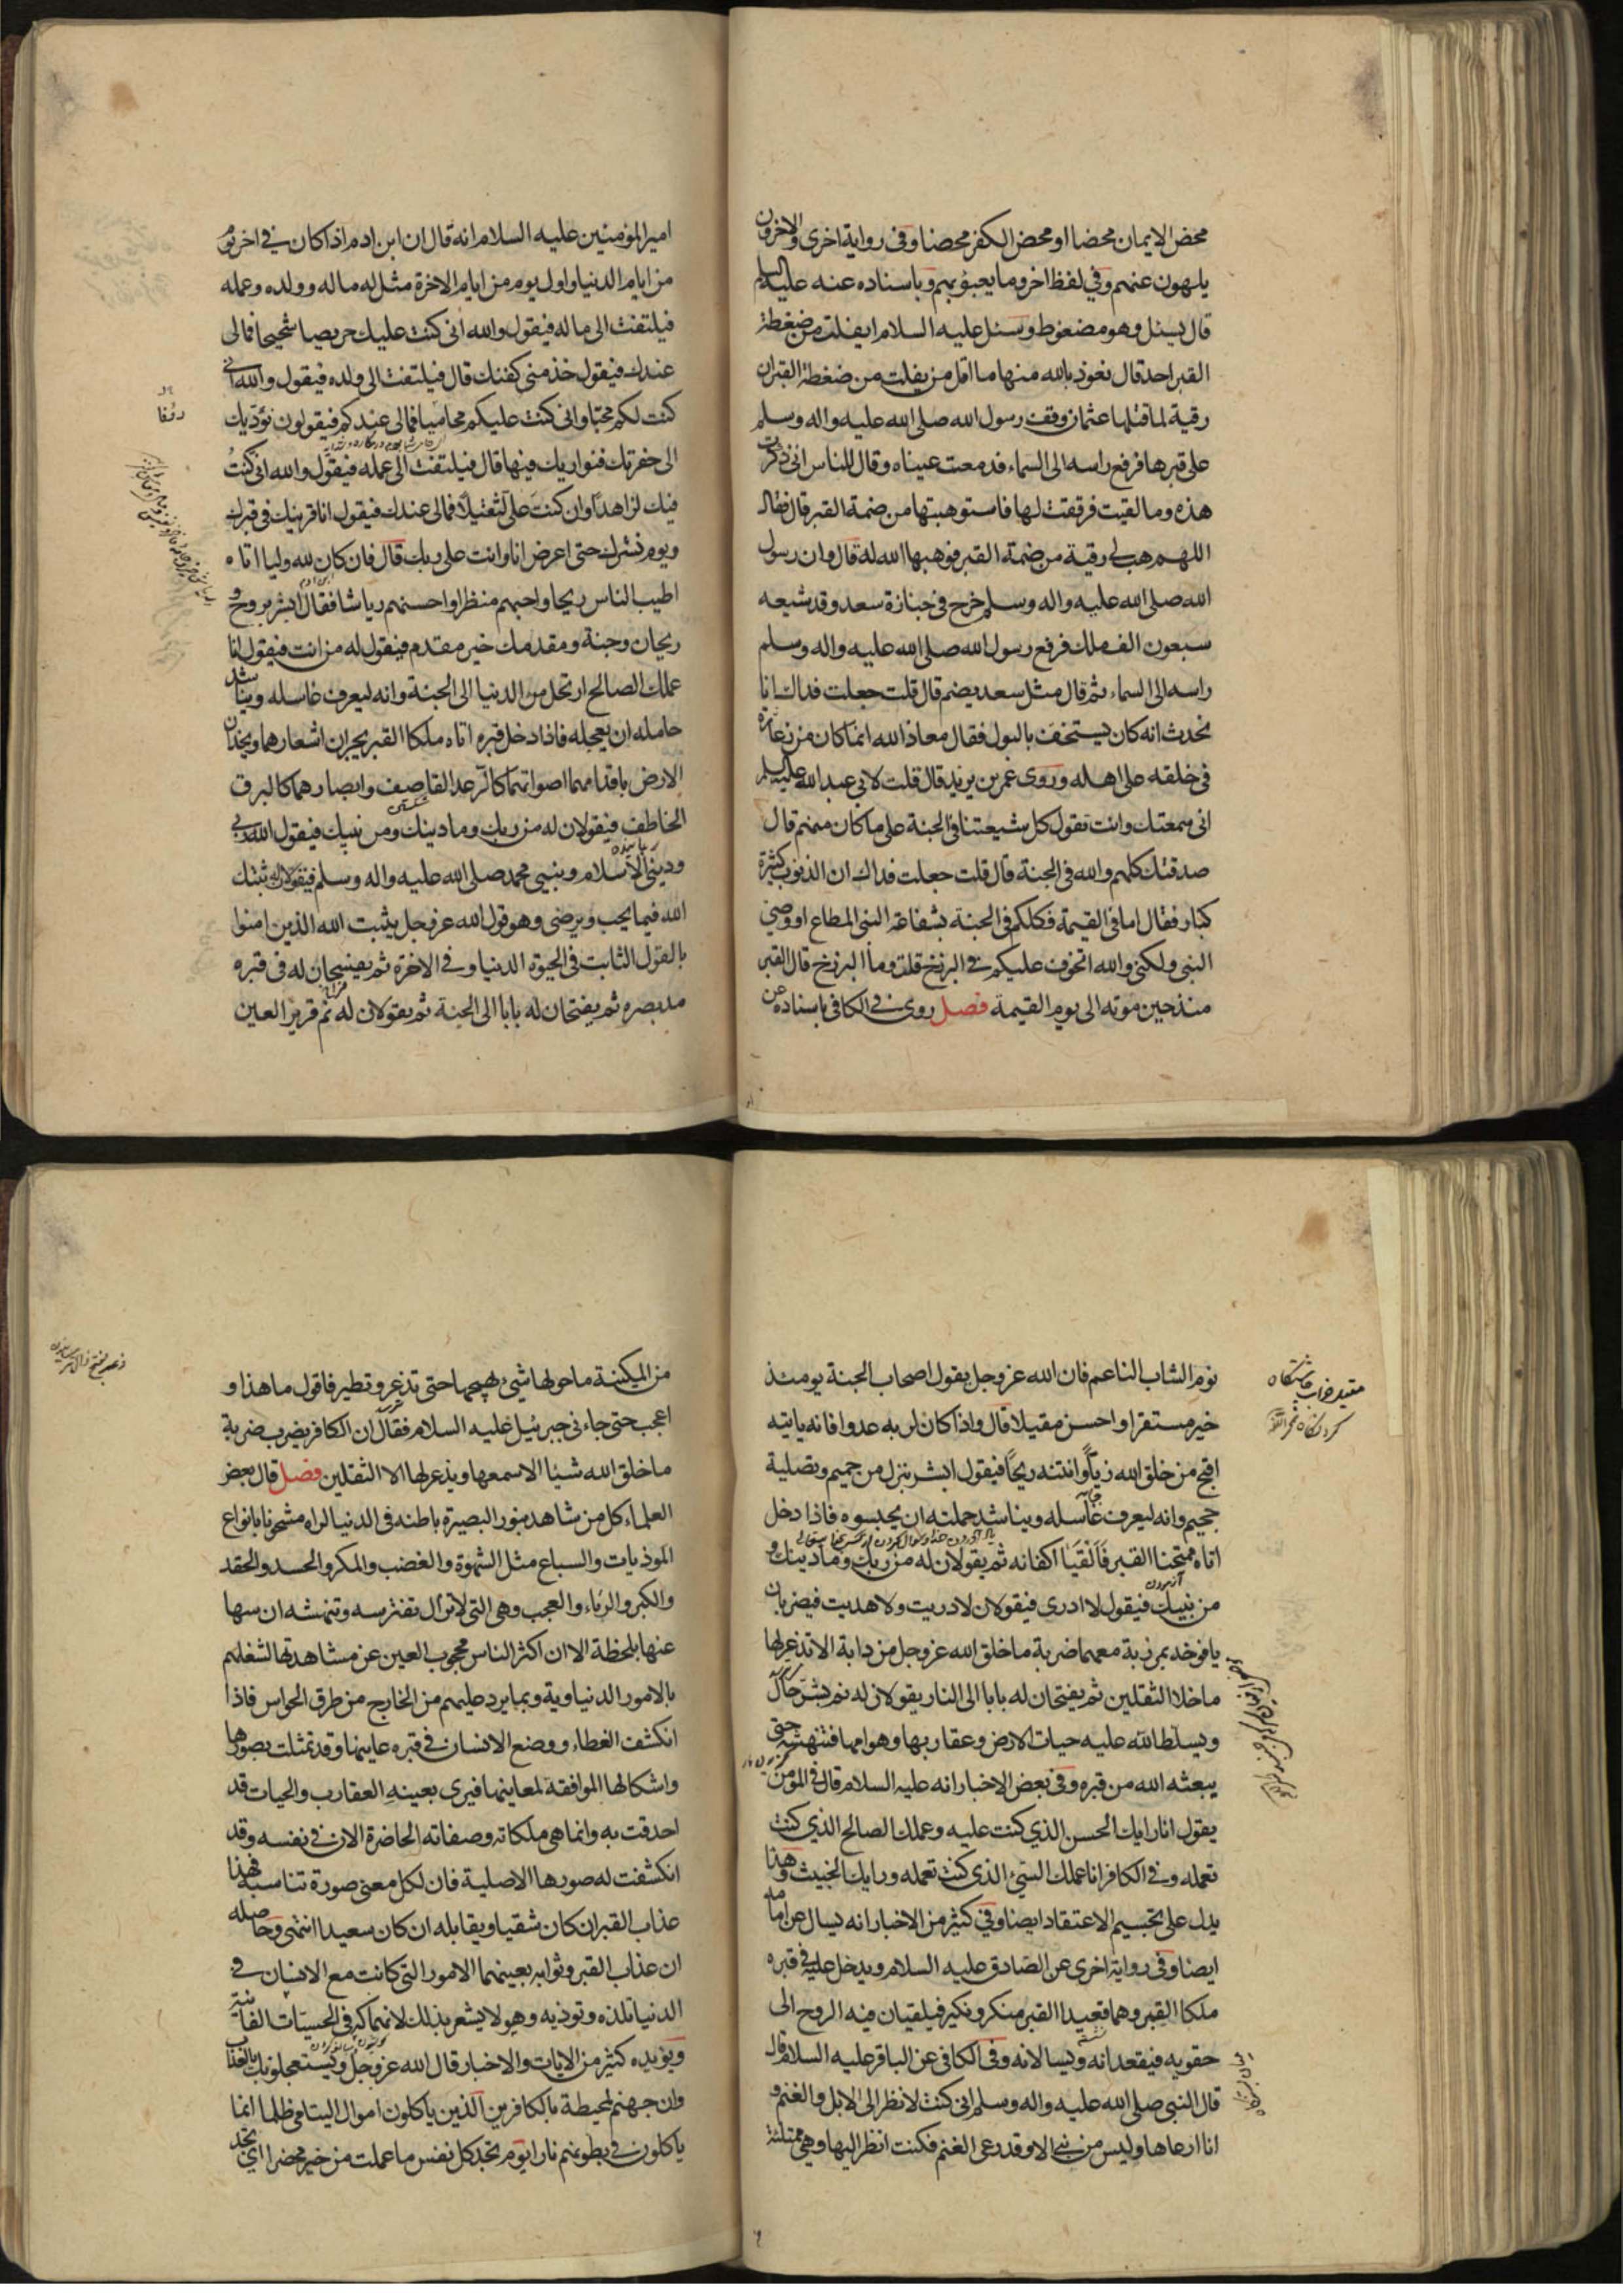 محض الايمان محضا او محض الكفر محضا وفى رواية اخرى والاخرون
يلهون عنهم وفي لفظ اخر وما يعبؤ بهم وباسناده عنه عليه السلم
قال يسئل وهو مضغوط وسئل عليه السلام ايفلت من ضغطة
القبر احد قال نعوذ بالله منها ما اقل من يفلت من ضغطة القبر ان
رقية لما قتلها عثمان وقف رسول الله صلى الله عليه واله وسلم
على قبرها فرفع راسه الى السماء فدمعت عيناه وقال للناس انى ذكرت
هذه وما لقيت فرققت لها فاستوهبتها من ضمة القبر قال فقال
اللهم هب لى رقية من ضمة القبر فوهبها الله له قال وان رسول
الله صلى الله عليه واله وسلم خرج فى جنازة سعد وقد شيعه
سبعون الف ملك فرفع رسول الله صلى الله عليه واله وسلم
راسه الى السماء ثم قال مثل سعد يضم قال قلت جعلت فداك انا
نحدث انه كان يستخف بالبول فقال معاذ الله انما كان من زعارة
فى خلقه على اهله وروى عمر بن يزيد قال قلت لابى عبد الله عليه السلم
انى سمعتك وانت تقول كل شيعتنا فى الجنة على ما كان منهم قال
صدقتك كلهم والله فى الجنة قال قلت جعلت فداك ان الذنوب كثيرة
كبار فقال اما فى القيمة فكلكم فى الجنة بشفاعة النبى المطاع او وصى
النبى ولكنى والله اتخوف عليكم فى البرزخ قلت وما البرزخ قال القبر
منذ حين موته الى يوم القيمة فصل روى فى الكافى باسناده عن
امير المؤمنين عليه السلام انه قال ان ابن ادم اذا كان فى اخر يوم
من ايام الدنيا واول يوم من ايام الاخرة مثل له ماله وولده وعمله
فيلتفت الى ماله فيقول والله انى كنت عليك حريصا شحيحا فمالى
عندك فيقول خذ منى كفنك قال فيلتفت الى ولده فيقول والله انى
كنت لكم محبا وانى كنت عليكم محاميا فمالى عندكم فيقولون نؤديك
الى حفرتك فنواريك فيها قال فيلتفت الى عمله فيقول والله انى كنت
فيك لزاهدا وان كنت على لثقيلا فمالى عندك فيقول انا قرينك فى قبرك
ويوم نشرك حتى اعرض انا وانت على ربك قال فان كان لله وليا اتاه
اطيب الناس ريحا واحبهم منظرا واحسنهم رياشا فقال ابشر بروح و
ريحان وجنة ومقدمك خير مقدم فيقول له من انت فيقول انا
عملك الصالح ارتحل من الدنيا الى الجنة وانه ليعرف غاسله ويناشد
حامله ان يعجله فاذا دخل قبره اتاه ملكا القبر يجران اشعارهما ويخدان
الارض باقدامهما اصواتهما كالرعد القاصف وابصارهما كالبرق
الخاطف فيقولان له من ربك وما دينك ومن نبيك فيقول الله ربى
ودينى الاسلام ونبيى محمد صلى الله عليه واله وسلم فيقولان له ثبتك
الله فيما يحب ويرضى وهو قول الله عز وجل يثبت الله الذين امنوا
بالقول الثابت فى الحيوة الدنيا وفى الاخرة ثم يفسحان له فى قبره
مد بصره ثم يفتحان له بابا الى الجنة ثم يقولان له نم قرير العين
نوم الشاب الناعم فان الله عز وجل يقول اصحاب الجنة يومئذ
خير مستقرا واحسن مقيلا قال واذا كان لربه عدوا فانه ياتيه
اقبح من خلق الله زيا وانتنه ريحا فيقول ابشر بنزل من حميم وتصلية
جحيم وانه ليعرف غاسله ويناشد حملته ان يحبسوه فاذا دخل
اتاه ممتحنا القبر فالقيا اكفانه ثم يقولان له من ربك وما دينك و
من نبيك فيقول لا ادرى فيقولان لا دريت ولا هديت فيضربان
يافوخه بمرزبة معهما ضربة ما خلق الله عز وجل من دابة الا تذعر لها
ما خلا الثقلين ثم يفتحان له بابا الى النار يقولان له نم بشر حال
ويسلط الله عليه حيات الارض وعقاربها وهوامها فتنهشه حتى
يبعثه الله من قبره وفى بعض الاخبار انه عليه السلام قال فى المؤمن
يقول انا رايك الحسن الذى كنت عليه وعملك الصالح الذى كنت
تعمله وفى الكافر انا عملك السيئ الذى كنت تعمله ورايك الخبيث وهذا
يدل على تجسيم الاعتقاد ايضا وفى كثير من الاخبار انه يسال عن امامه
ايضا وفى رواية اخرى عن الصادق عليه السلام ويدخل عليه فى قبره
ملكا القبر وهما قعيدا القبر منكر ونكير فيلقيان فيه الروح الى
حقويه فيقعدانه ويسالانه وفى الكافى عن الباقر عليه السلام قال
قال النبى صلى الله عليه واله وسلم انى كنت لانظر الى الابل والغنم و
انا ارعاها وليس من نبى الا وقد رعى الغنم فكنت انظر اليها وهى ممتلئة
من المكينة ما حولها شئ يهيجها حتى تذعر وتطير فاقول ما هذا و
اعجب حتى جاءنى جبرئيل عليه السلام فقال ان الكافر يضرب ضربة
ما خلق الله شيئا الا سمعها ويذعر لها الا الثقلين فصل قال بعض
العلماء كل من شاهد بنور البصيرة باطنه فى الدنيا لراه مشحونا بانواع
الموذيات والسباع مثل الشهوة والغضب والمكر والحسد والحقد
والكبر والرياء والعجب وهى التى لا تزال تفترسه وتنهشه ان سها
عنها بلحظة الا ان اكثر الناس محجوب العين عن مشاهدتها لشغلهم
بالامور الدنياوية وبما يرد عليهم من الخارج من طرق الحواس فاذا
انكشف الغطاء ووضع الانسان فى قبره عاينها وقد تمثلت بصورها
واشكالها الموافقة لمعاينها فيرى بعينه العقارب والحيات قد
احدقت به وانما هى ملكاته وصفاته الحاضرة الان فى نفسه وقد
انكشفت له صورها الاصلية فان لكل معنى صورة تناسبه فهذا
عذاب القبر ان كان شقيا ويقابله ان كان سعيدا انتهى وحاصله
ان عذاب القبر وثوابه بعينهما الامور التى كانت مع الانسان فى
الدنيا تلذه وتوذيه وهو لا يشعر بذلك لانهماكه فى الحسيات الفانية
ويؤيده كثير من الايات والاخبار قال الله عز وجل ويستعجلونك بالعذاب
وان جهنم لمحيطة بالكافرين الذين ياكلون اموال اليتامى ظلما انما
ياكلون فى بطونهم نارا يوم تجد كل نفس ما عملت من خير محضرا اى تجد